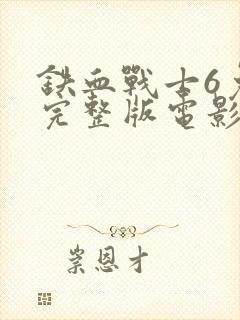 鉄血戰士6免
完整版電影
岽恩才